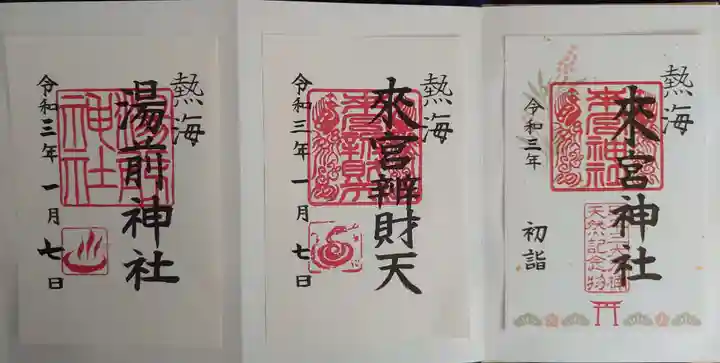 熱海
來宮神社
令和三年
初詣
天然記念物
熱海
來宮辨財天
令和三年一月七日
熱海
湯前神社
令和三年一月七日
湯前神社